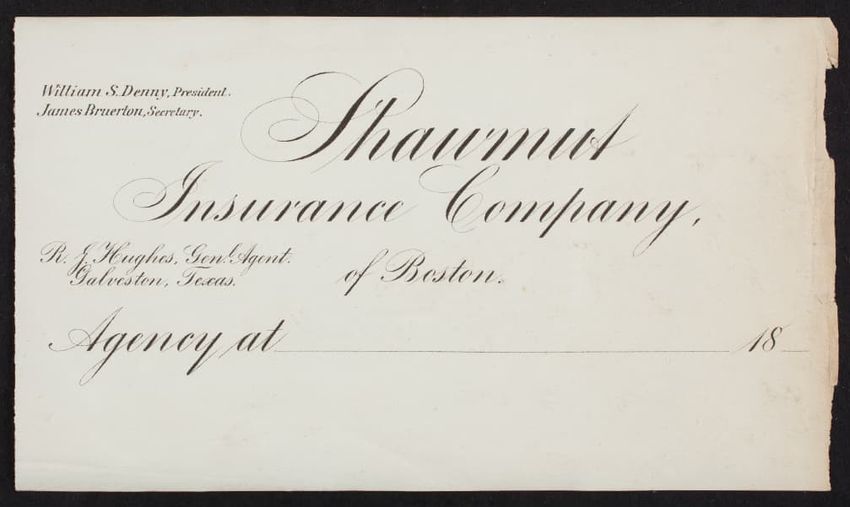 William S. Denny, President.
James Bruerton, Secretary.
Shawmut
Insurance Company,
R. J. Hughes, Genl. Agent.
Galveston, Texas.
of Boston.
Agency at 18